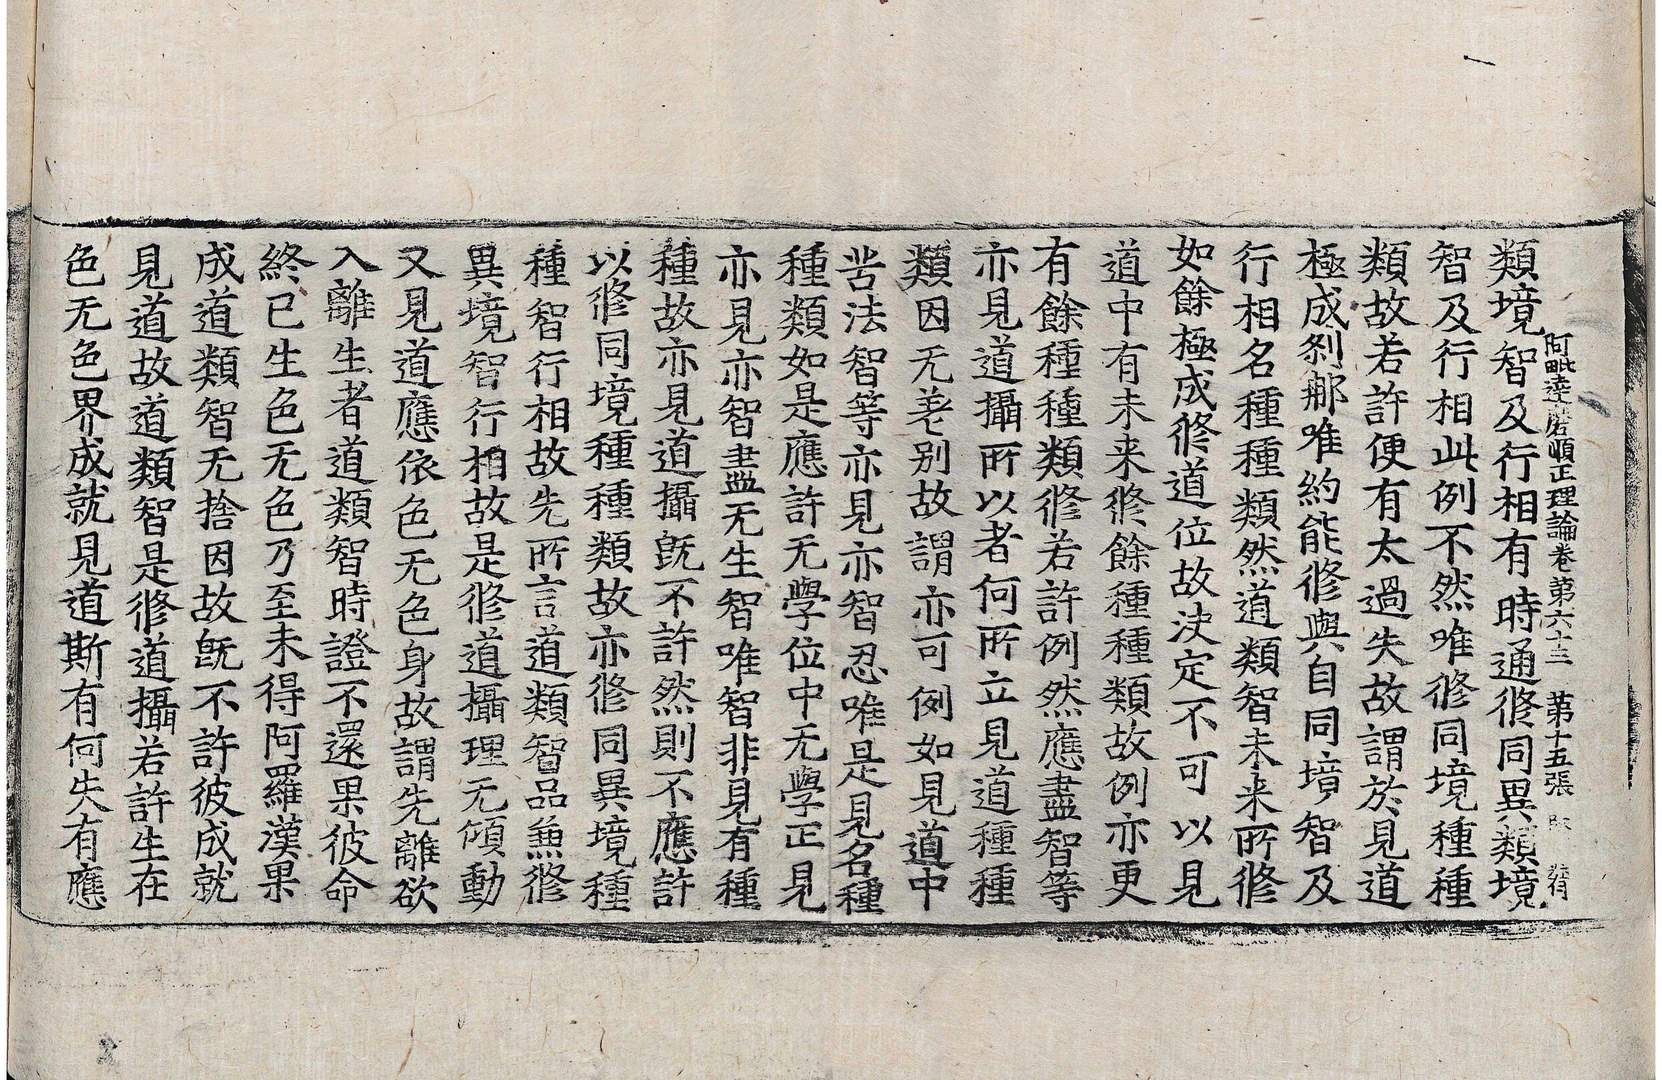 阿毗達磨順正理論卷第六十三　第十五張
類境智及行相有時通修同異類境
智及行相此例不然唯修同境種種
類故若許便有太過失故謂於見道
極成刹那唯約能修與自同境智及
行相名種種類然道類智未来所修
如餘極成修道位故決定不可以見
道中有未来修餘種種類故例亦更
有餘種種類修若許例然應盡智等
亦見道攝所以者何所立見道種種
類因无差别故謂亦可例如見道中
苦法智等亦見亦智忍唯是見名種
種類如是應許无學位中无學正見
亦見亦智盡无生智唯智非見有種
種故亦見道攝旣不許然則不應許
以修同境種種類故亦修同異境種
種智行相故先所言道類智品兼修
異境智行相故是修道攝理无傾動
又見道應依色无色身故謂先離欲
入離生者道類智時證不還果彼命
終已生色无色乃至未得阿羅漢果
成道類智无捨因故旣不許彼成就
見道故道類智是修道攝若許生在
色无色界成就見道斯有何失有應